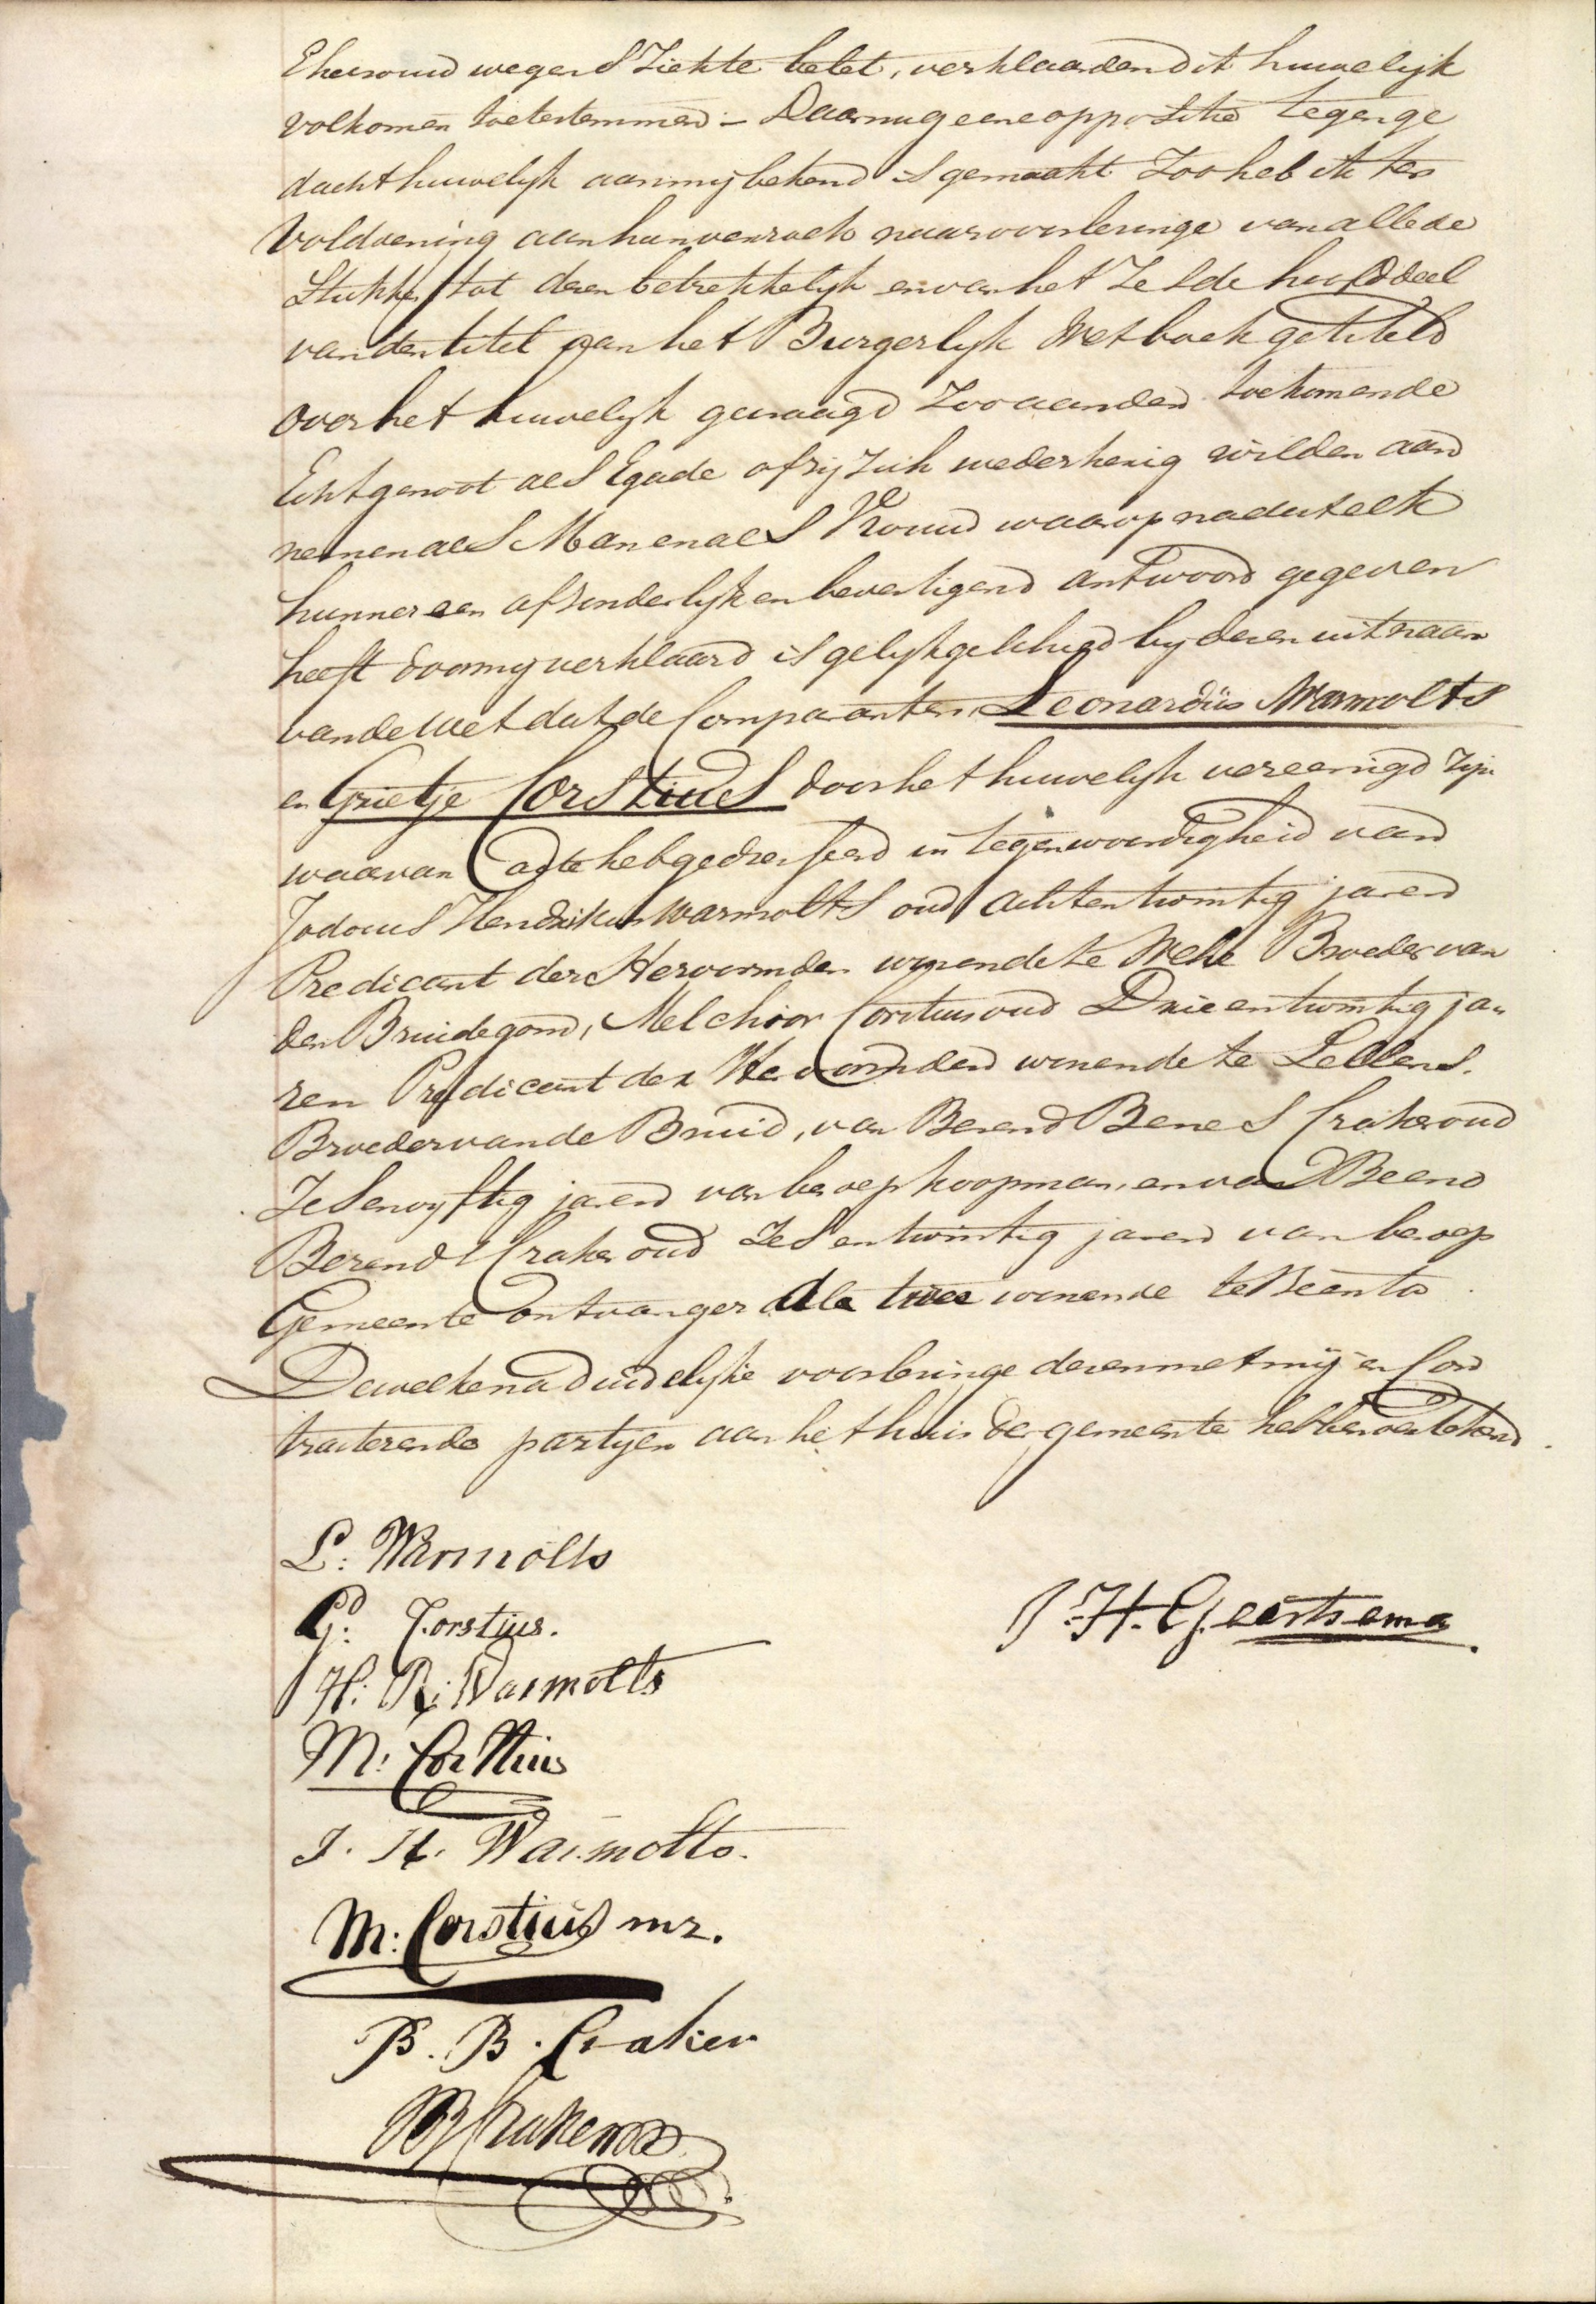 Ehevroud wegens Ziekte belet, verklaarden dit huwelijk
volkomen toetestemmen – Daarnu geene oppositie tegen ge
dacht huwelijk aan mij bekend is gemaakt Zoo heb ik ter
voldoening aan hun verzoek naar voorlezinge van alle de
Stukken tot dezen betrekkelijk en van het Zesde hoofddeel
van den titel van het Burgerlijk Wetboek getiteld
over het huwelijk gevraagd Zoo aan den toekomende
Echtgenoot als Egade of zij Zich wederkerig wilden aan
nemen als Man en als Vrouw waarop nadat elk
hunner een afzonderlijk en bevestigend antwoord gegeven
heeft door mij verklaard is gelijk geschied by dezen uit naam
van de Wet dat de Comparanten, Leonardus Warmolts
en Grietje Corstius door het huwelijk vereenigd zijn
waarvan acte heb gedresseerd in tegenwoordigheid van
Jodocus Hendrikus Warmolts oud achtentwintig jaren
Predicant der Hervormden wonende te Wehe Broeder van
den Bruidegom, Melchior Corstius oud Drie entwintig ja„
ren Predicant der Hervormden wonende te Lellens.
Broeder van de Bruid, van Berend Benes Craker oud
Zes envyftig jaren van beroep koopman, en van Beeno
Berends Craker oud Zes entwintig jaren van beroep
Gemeente ontvanger Alle twee wonende te Beerta
Dewelke na duidelijke voorlezinge dezen met mij en Con
tracterende partijen aan het huis der gemeente hebben vertekend.
L: Warmolts
Gd: Corstius.
J. H. Geertsema
H: R: Warmolts
M: Corstius
J. H. Warmolts.
M: Corstius mz.
B. B. Craker
BB Craker